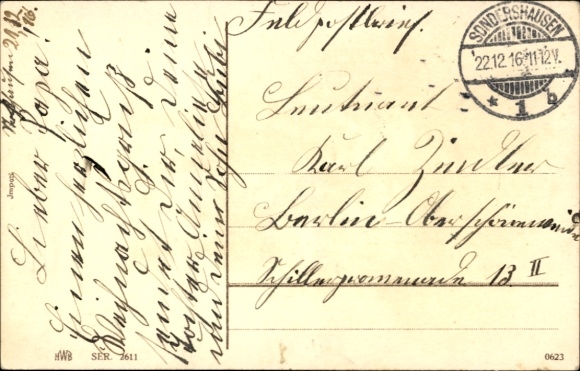 21.12.16.
Lieber Papa!
Einen herzlichen
Weihnachtsgruß
sendet Dir, Deine
Tochter
und Deine
Feldpostbrief.
SONDERSHAUSEN
22.12.16.11-12V.
* 1 b
Leutnant
Karl
Berlin-Oberschöneweide
Schillerpromenade 13 II
Import
HWB SER. 2611
0623